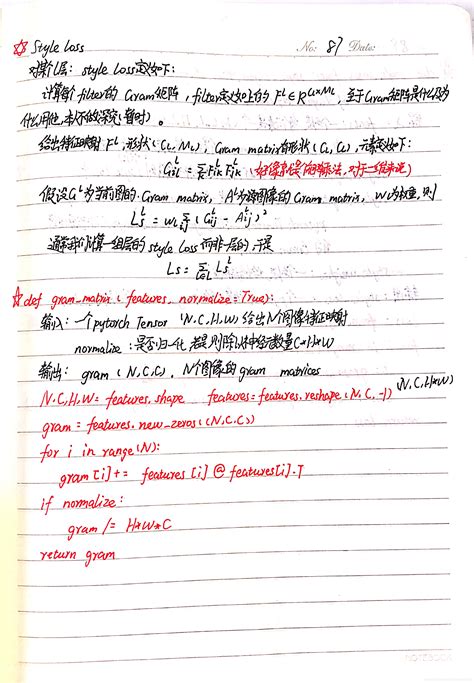 ☆ Style Loss No: 87 Date:
对第l层: style loss定义如下:
计算每个filter的Gram矩阵, filter定义如上的 F^l∈R^{C_l×M_l}, 至于Gram矩阵是什么及为
什么用他, 暂时).
给出特征映射F^l, 形状(C_l, M_l), Gram matrix有形状(C_l, C_l), 元素定义如下:
G^l_{ij} = Σ_k F^l_{ik} F^l_{jk} (对于二维来说)
假设G^l为当前图的Gram matrix, A^l为源图像的Gram matrix, W_l为权重, 则
L^l_s = w_l Σ_{ij} (G^l_{ij} - A^l_{ij})^2
通常我们计算一组层的style loss而非一层的, 于是
L_s = Σ_{l∈L} L^l_s
☆ def gram_matrix (features, normalize=True):
输入: 一个pytorch Tensor (N,C,H,W) 给出N个图像特征映射
normalize: 是否归一化, 若是则除以神经元数量C*H*W
输出: gram (N,C,C), N个图像的gram matrices
N,C,H,W= features.shape features=features.reshape(N,C,-1) (N,C,H*W)
gram = features.new_zeros((N,C,C))
for i in range(N):
gram[i]+= features[i] @ features[i].T
if normalize:
gram /= H*W*C
return gram